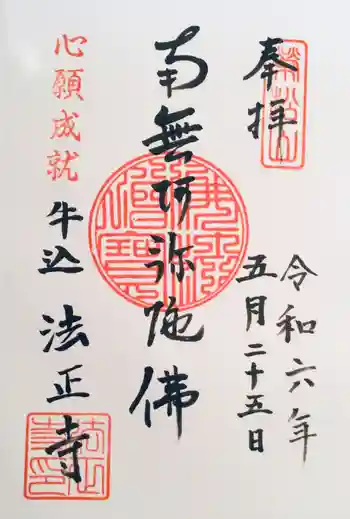 奉拝
令和六年
五月二十五日
南無阿弥陀佛
心願成就
牛込 法正寺
佛法僧寶